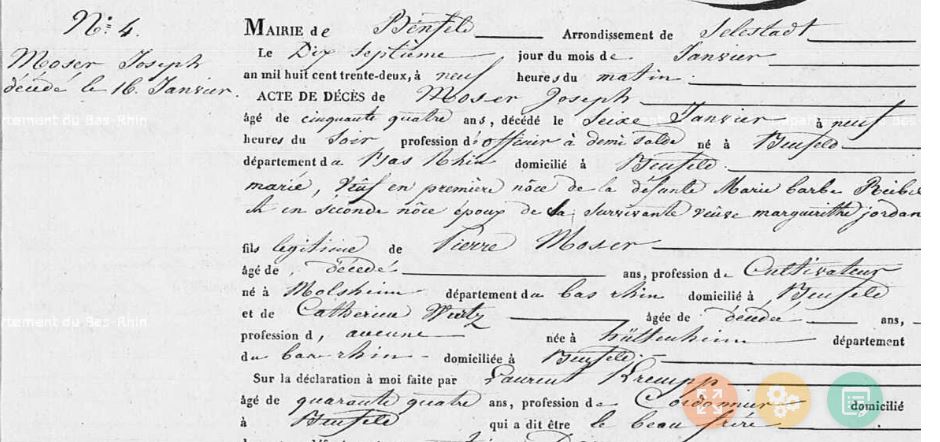 N.° 4.
Moser Joseph
décédé le 16. Janvier.
MAIRIE de Benfeld Arrondissement de Sélestadt
Le Dix septième jour du mois de Janvier
an mil huit cent trente-deux, à neuf heures du matin.
ACTE DE DÉCÈS de Moser Joseph
âgé de cinquante quatre ans, décédé le Seize Janvier à neuf
heures du Soir profession d'officier à demi solde né à Benfeld
département du Bas Rhin domicilié à Benfeld.
marié, Veuf en première nôce de la défunte Marie barbe Reibel
et en seconde nôce époux de la survivante veuve margueritte jordan
fils legitime de Pierre Moser
âgé de, décédé ans, profession de Cultivateur
né à Molsheim département du bas rhin domicilié à Benfeld
et de Catherine Wurtz âgée de décédée ans,
profession d, aucune née à hüttenheim département
du bas rhin - domiciliée à Benfeld.
Sur la déclaration à moi faite par Laurent Krempp
âgé de quarante quatre ans, profession de Cordonnier domicilié
à Benfeld qui a dit être le beau frère
rtement du Bas-Rhin
rtement du Bas-Rhin